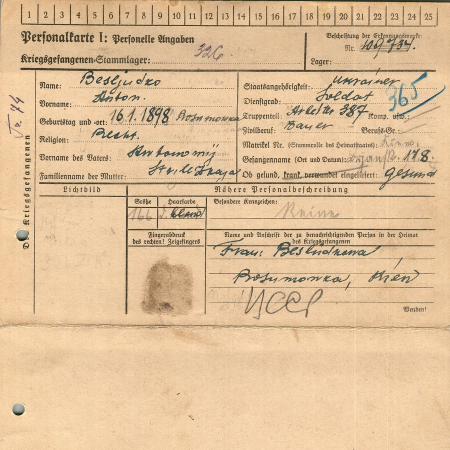 1 2 3 4 5 6 7 8 9 10 11 12 13 14 15 16 17 18 19 20 21 22 23 24 25
Personalkarte I: Personelle Angaben
Kriegsgefangenen-Stammlager: 326
Beschriftung der Erkennungsmarke
Nr.
Lager:
Des Kriegsgefangenen
Name: Besljudko
Vorname: Anton
Geburtstag und -ort: 16.1.1898 Rosumowka
Religion:
Vorname des Vaters:
Familienname der Mutter:
Staatsangehörigkeit: Ukrainer
Dienstgrad: Soldat
Truppenteil: 387 Komp. usw.:
Zivilberuf: Bauer Berufs-Gr.:
Matrikel Nr. (Stammrolle des Heimatstaates):
Gefangennahme (Ort und Datum):
Ob gesund, krank, verwundet eingeliefert: Gesund
365
Lichtbild
Nähere Personalbeschreibung
Größe
Haarfarbe
166
blond
Besondere Kennzeichen:
Keine
Fingerabdruck
des rechten! Zeigefingers
Name und Anschrift der zu benachrichtigenden Person in der Heimat
des Kriegsgefangenen
Frau: Besludkowa
Rosumowka, Kiew
Wenden!